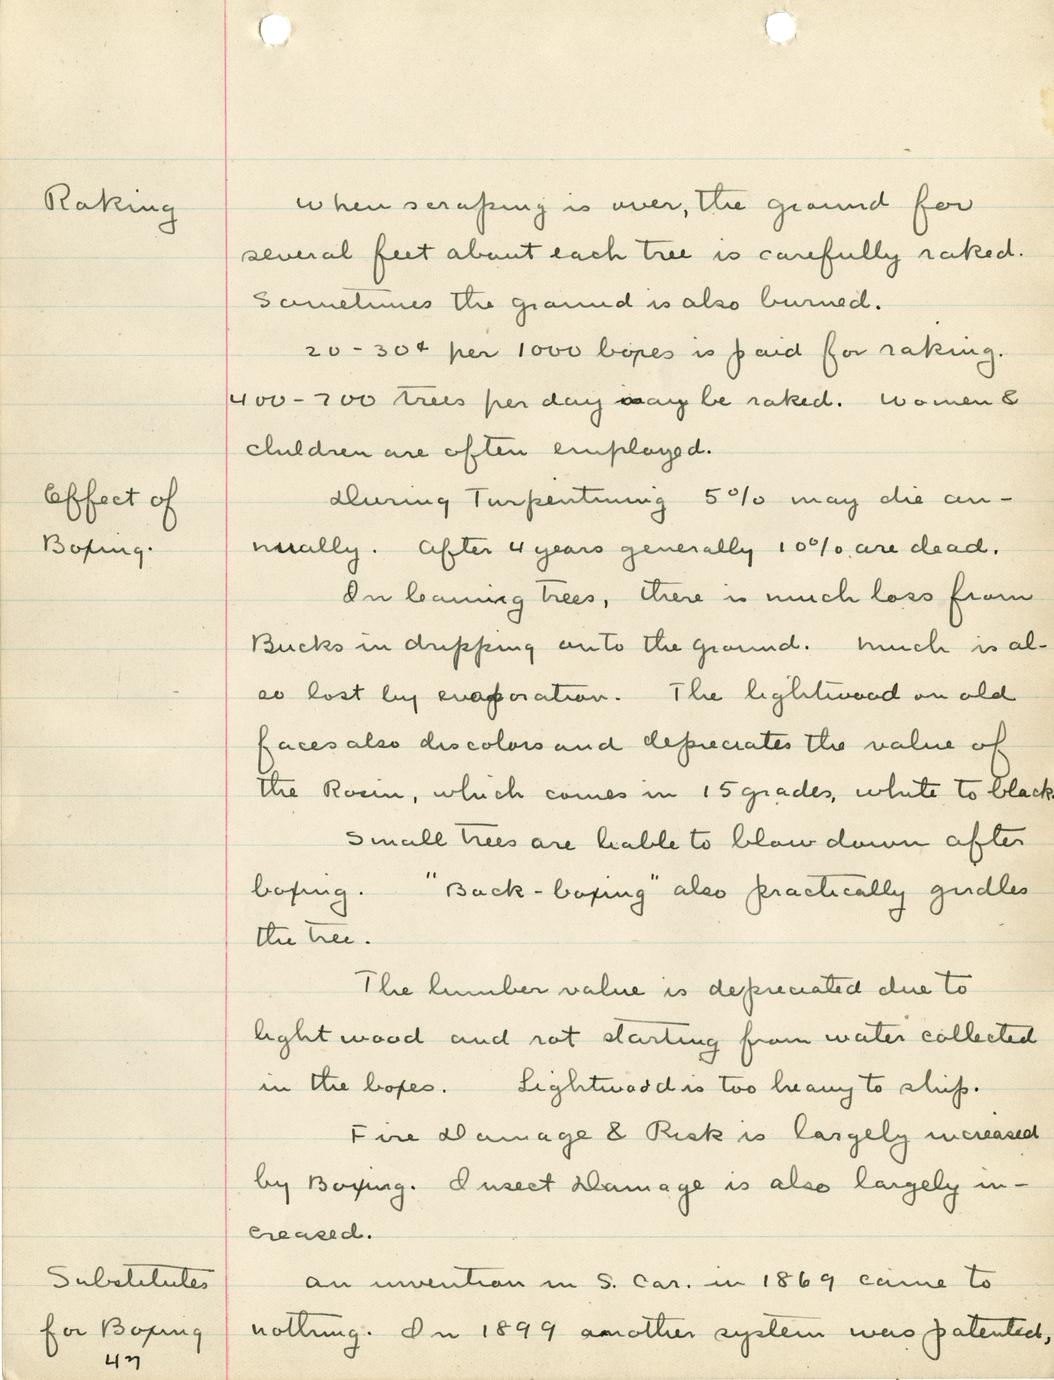 Raking when scraping is over, the ground for
several feet about each tree is carefully raked.
Sometimes the ground is also burned.
20-30¢ per 1000 boxes is paid for raking.
400-700 trees per day may be raked. Women &
children are often employed.
Effect of During Turpentining 5% may die an-
Boxing. nually. After 4 years generally 10% are dead.
In leaning trees, there is much loss from
Bucks in dripping onto the ground. Much is al-
so lost by evaporation. The lightwood on old
faces also discolors and depreciates the value of
the Rosin, which comes in 15 grades, white to black.
Small trees are liable to blow down after
boxing. "Back-boxing" also practically girdles
the tree.
The lumber value is depreciated due to
light wood and rot starting from water collected
in the boxes. Lightwood is too heavy to ship.
Fire Damage & Risk is largely increased
by Boxing. Insect Damage is also largely in-
creased.
Substitutes An invention in S. Car. in 1869 came to
for Boxing nothing. In 1899 another system was patented,
47